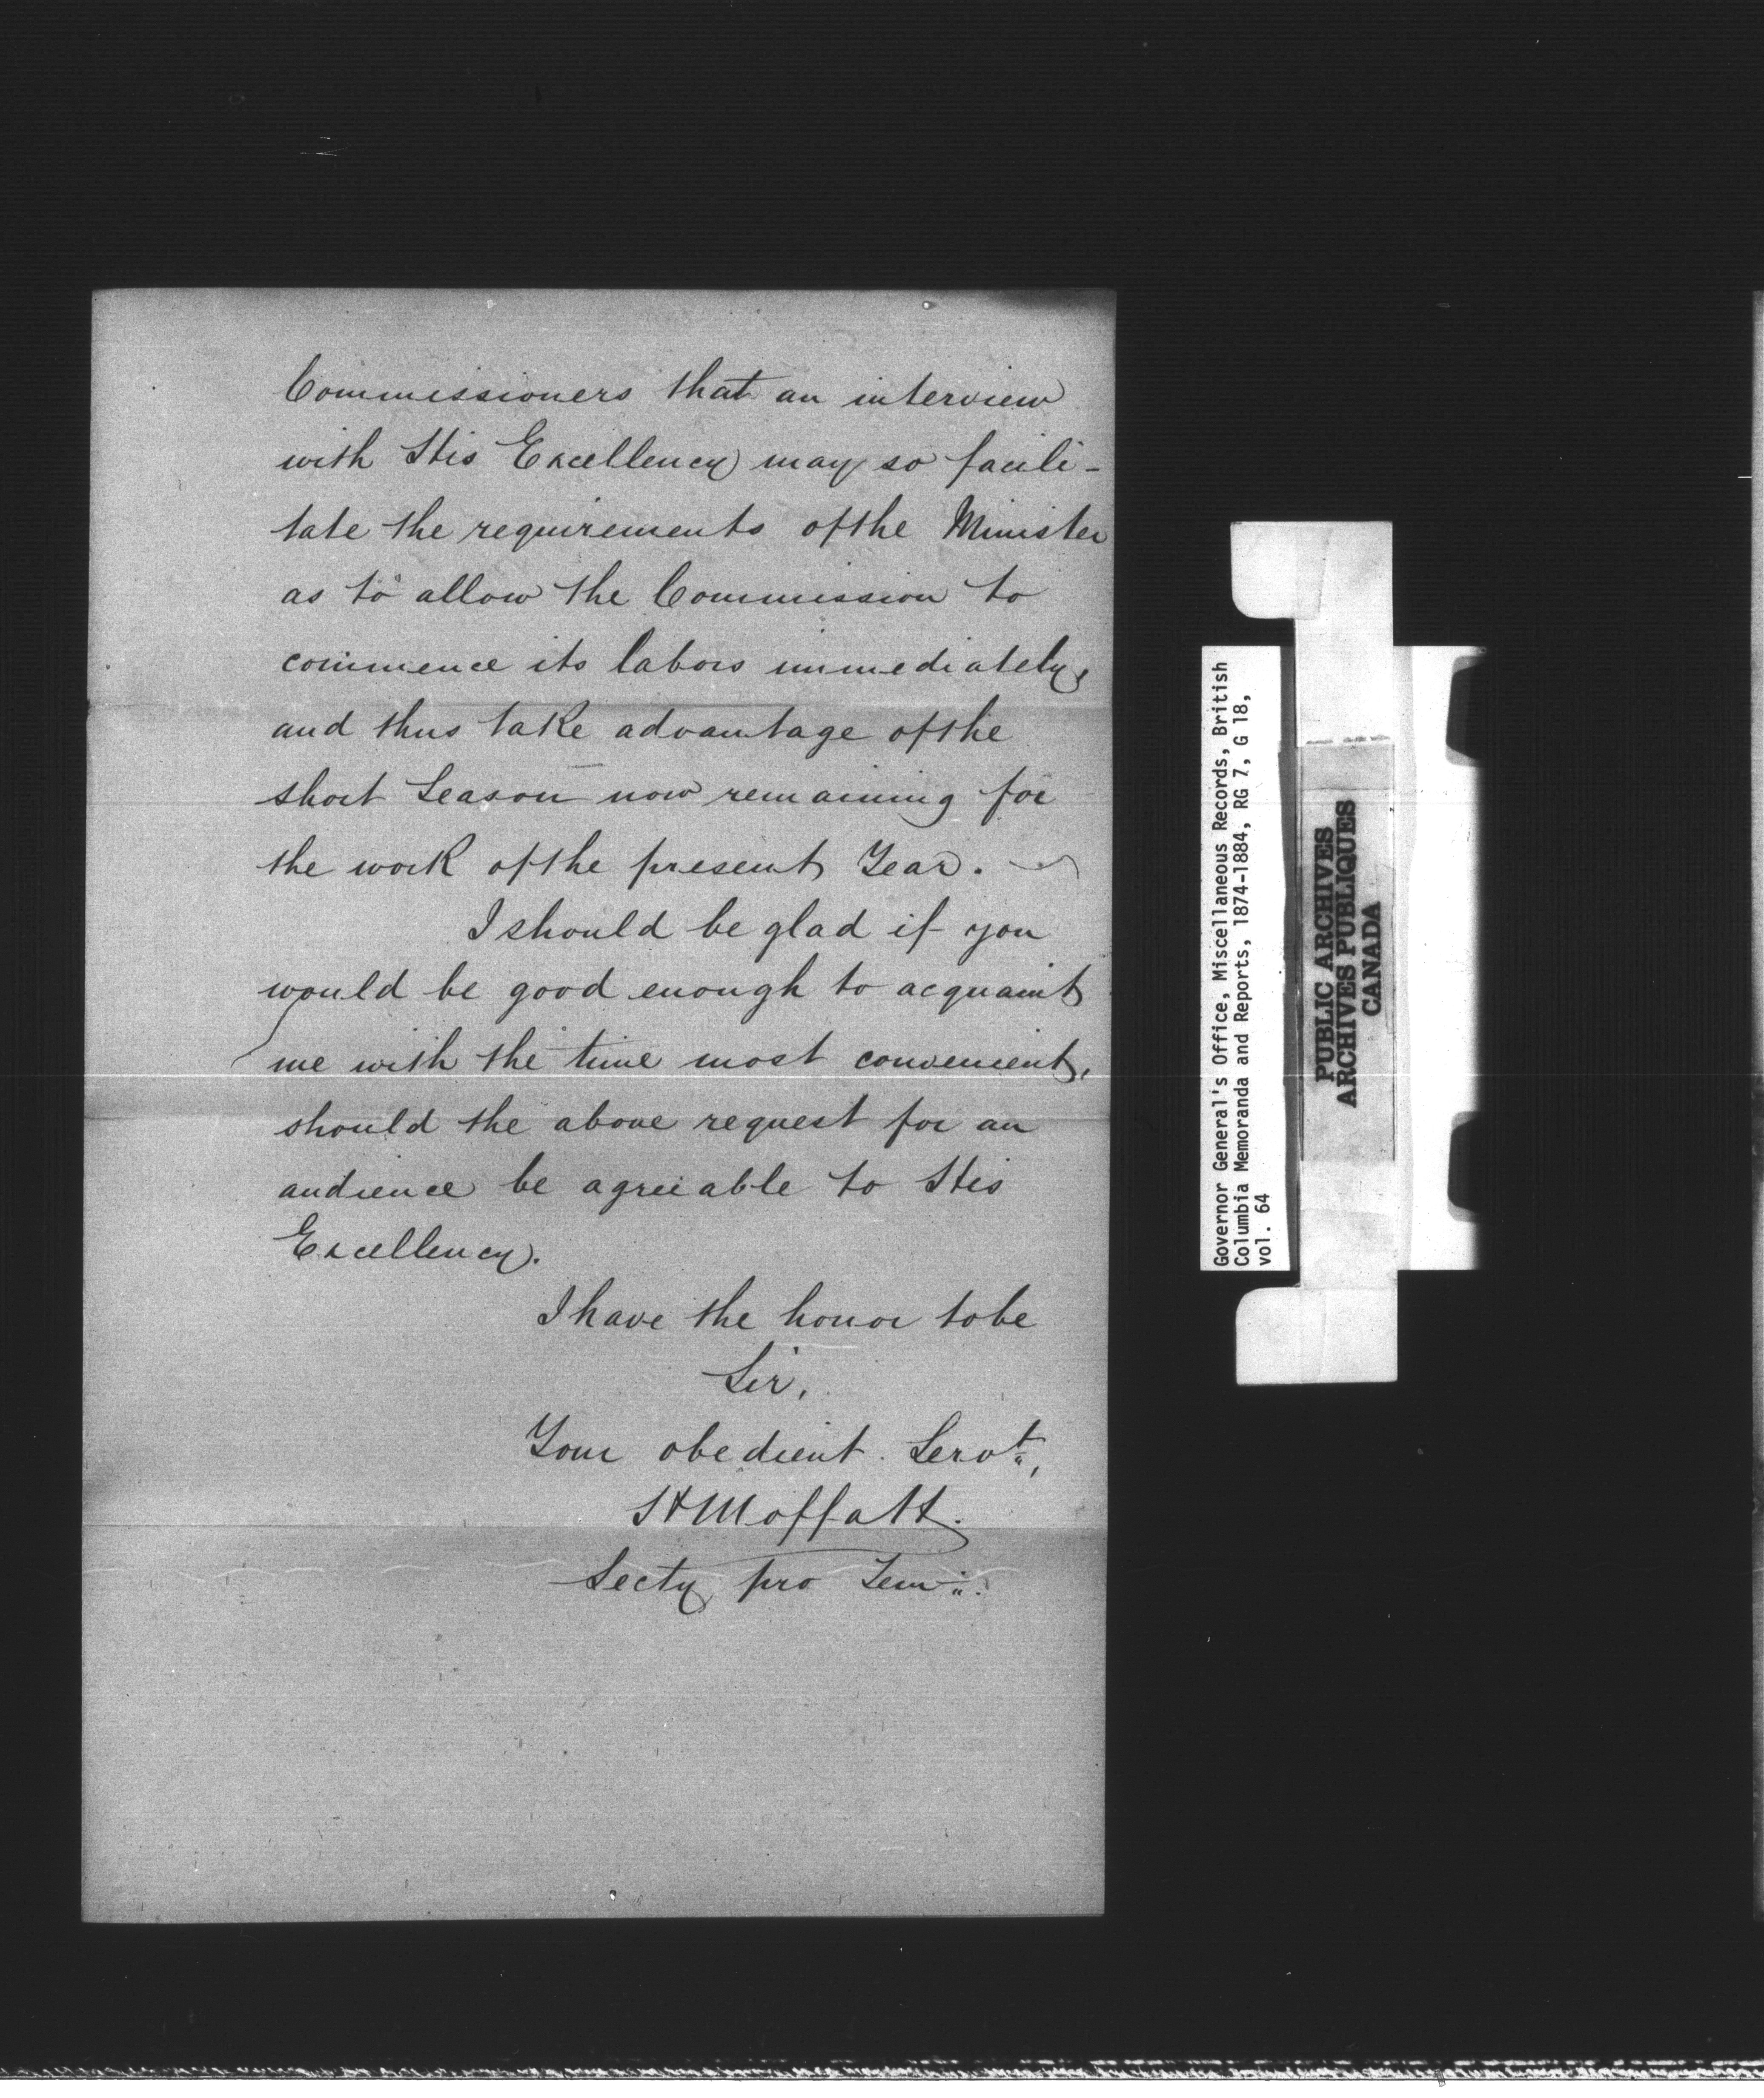 Commissioners that an interview
with His Excellency may so facili-
tate the requirements of the Minister
as to allow the Commission to
commence its labors immediately,
and thus take advantage of the
short Season now remaining for
the work of the present Year.
I should be glad if you
would be good enough to acquaint
me with the time most convenient,
should the above request for an
audience be agreeable to His
Excellency.
I have the honor to be
Sir,
Your obedient Servt,
H Moffatt.
Secty pro Tem.
Governor General's Office, Miscellaneous Records, British
Columbia Memoranda and Reports, 1874-1884, RG 7, G 18,
vol. 64
PUBLIC ARCHIVES
ARCHIVES PUBLIQUES
CANADA